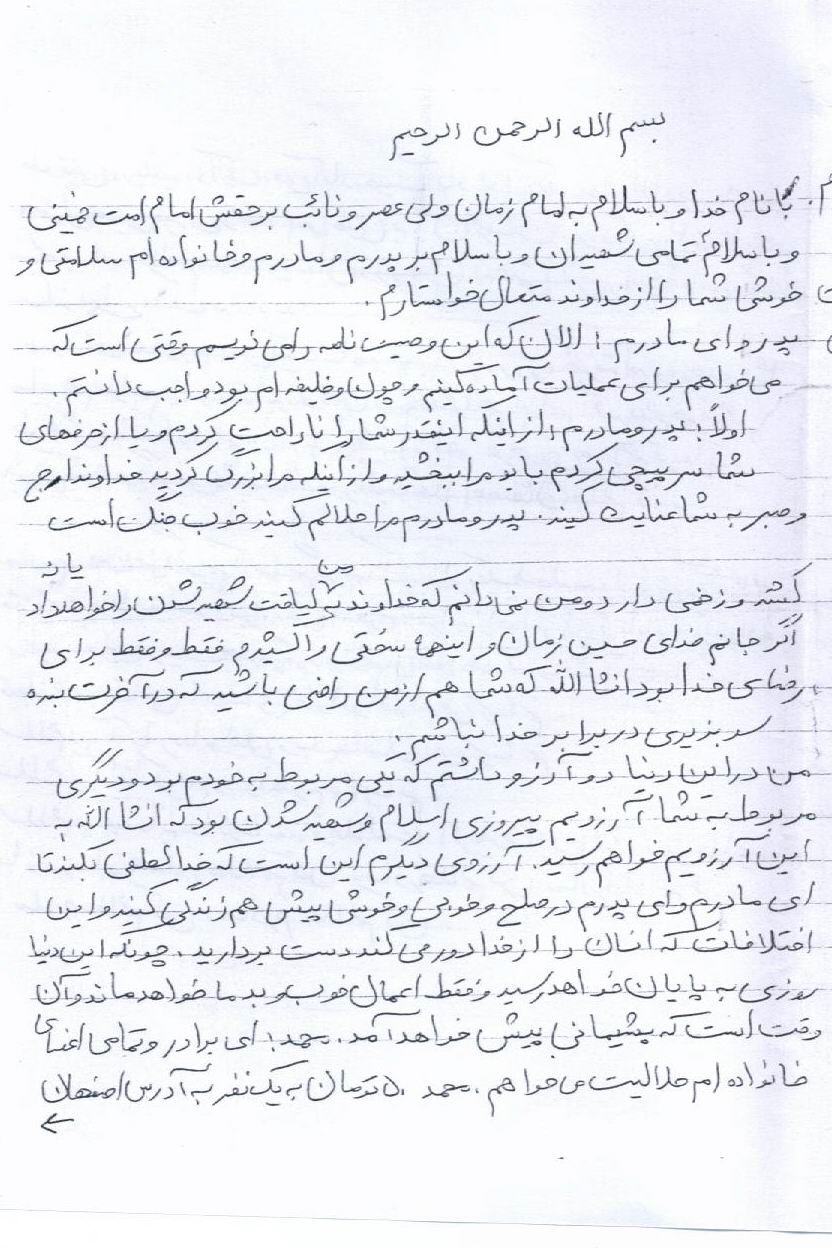 بسم الله الرحمن الرحیم
با نام خدا و با سلام به امام زمان ولی عصر و نائب برحقش امام امت خمینی
و با سلام تمامی شهیدان و با سلام بر پدرم و مادرم و خانواده ام سلامتی و
خوشی شما را از خداوند متعال خواستارم .
پدر و ای مادرم ! الان که این وصیت نامه را می نویسم وقتی است که
می خواهم برای عملیات آماده کینم و چون وظیفه ام بود واجب دانستم .
اولاً ! پدر و مادرم ! از اینکه اینقدر شما را ناراحت کردم و یا از حرفهای
شما سرپیچی کردم باید مرا ببخشید و از اینکه مرا بزرگ کردید خداوند اجر
و صبر به شما عنایت کیند . پدر و مادرم مرا حلالم کیند خوب جنگ است
کشته و زخمی دارد و من نمی دانم که خداوند به من لیاقت شهید شدن را خواهد داد یا نه
اگر جانم فدای حسین زمان و اینهمه سختی را کشیدم فقط و فقط برای
رضای خدا بود انشا الله که شما هم از من راضی باشید که در آخرت بنده
سربزیری در برابر خدا نباشم .
من در این دنیا دو آرزو داشتم که یکی مربوط به خودم بود و دیگری
مربوط به شما آرزویم پیروزی اسلام و شهید شدن بود که انشا الله به
این آرزویم خواهم رسید . آرزوی دیگرم این است که خدا لطفی بکند تا
ای مادرم و ای پدرم در صلح و خوبی و خوش پیش هم زندگی کیند و این
اختلافات که انسان را از خدا دور می کند دست بردارید . چونکه این دنیا
روزی به پایان خواهد رسید و فقط اعمال خوب و بد ما خواهد ماند و آن
وقت است که پشیمانی پیش خواهد آمد . محمد ! ای برادر و تمامی اعضای
خانواده ام حلالیت می خواهم . محمد ۵۰ تومان به یک نفر به آدرس اصفهان
←